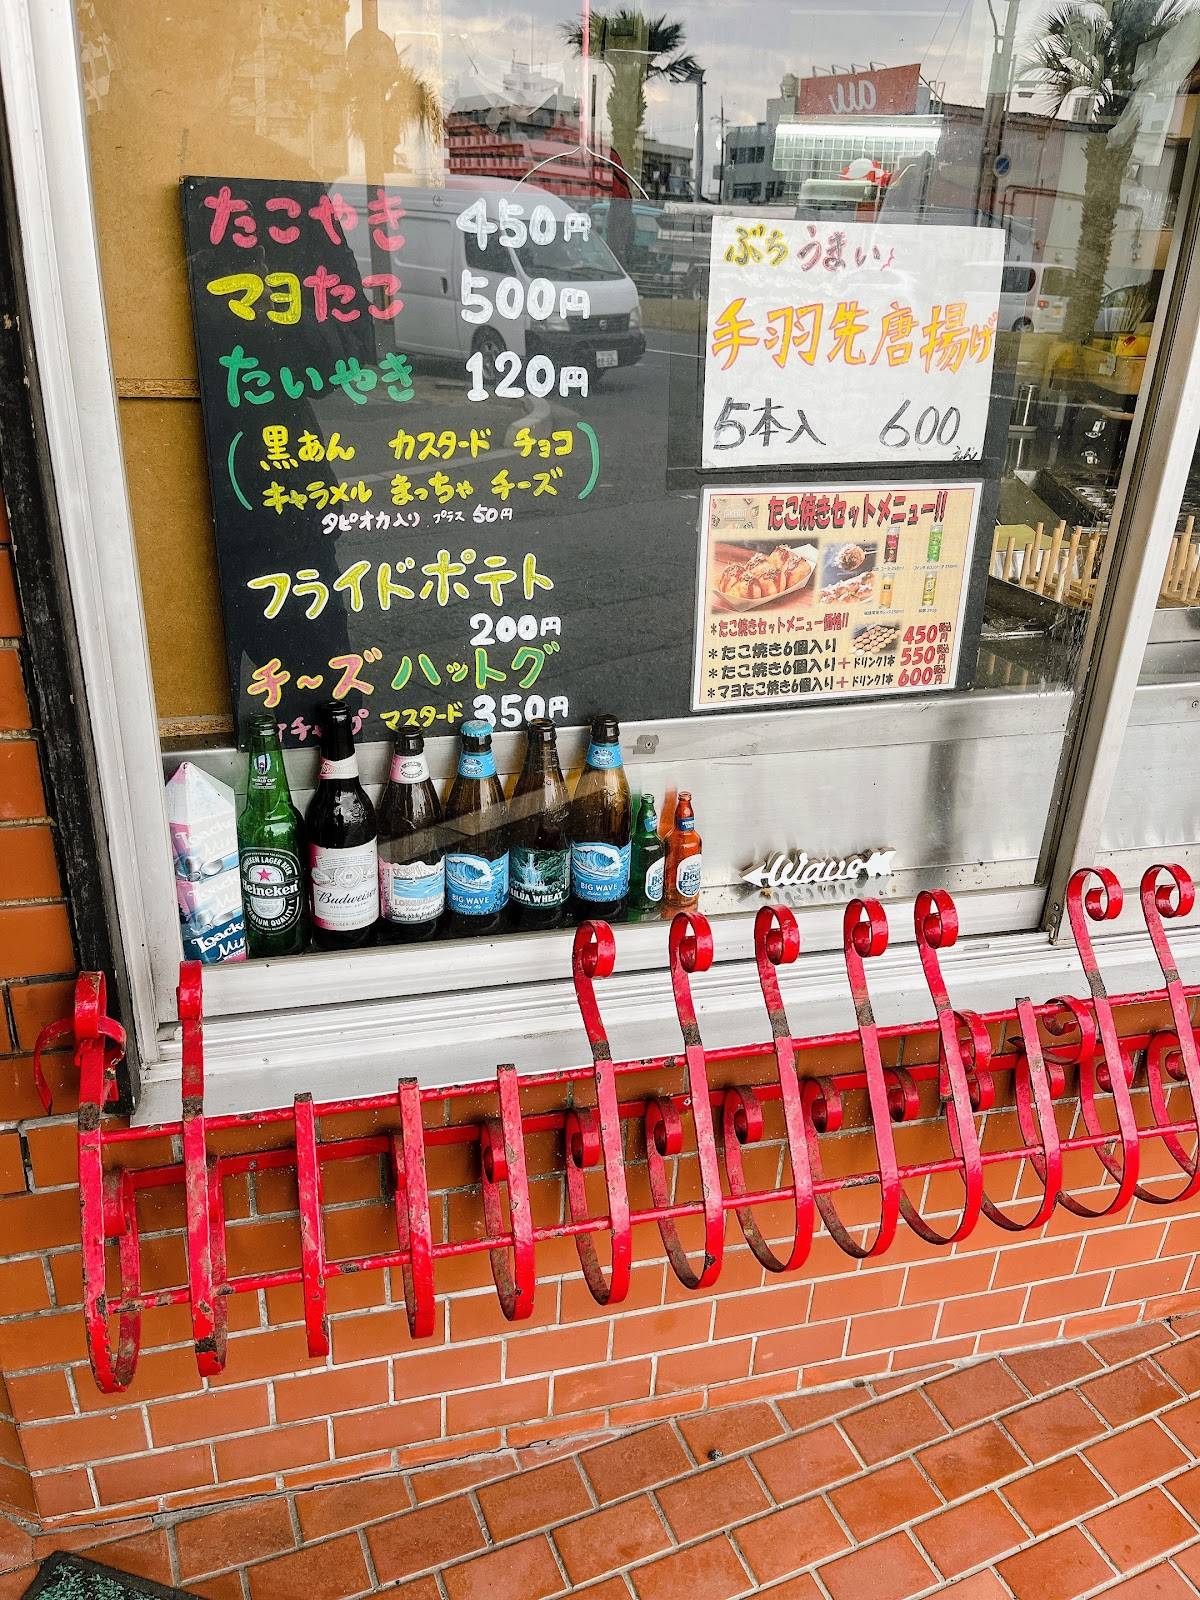 たこやき 450円
マヨたこ 500円
たいやき 120円
(黒あん カスタード チョコ
キャラメル まっちゃ チーズ)
タピオカ入り プラス 50円
フライドポテト
200円
チ〜ズハットグ
マスタード 350円
au
ぶらうまい
手羽先唐揚げ
5本入 600
えん
たこ焼きセットメニュー!!
*たこ焼きセットメニュー価格!!
*たこ焼き6個入り 450円
*たこ焼き6個入り+ドリンク1本 550円
*マヨたこ焼き6個入り+ドリンク1本 600円
Heineken
HEINEKEN LAGER BEER
PREMIUM QUALITY
Budweiser
BIG WAVE
WHEAT
BIG WAVE
Loacker
Loacker
Wave